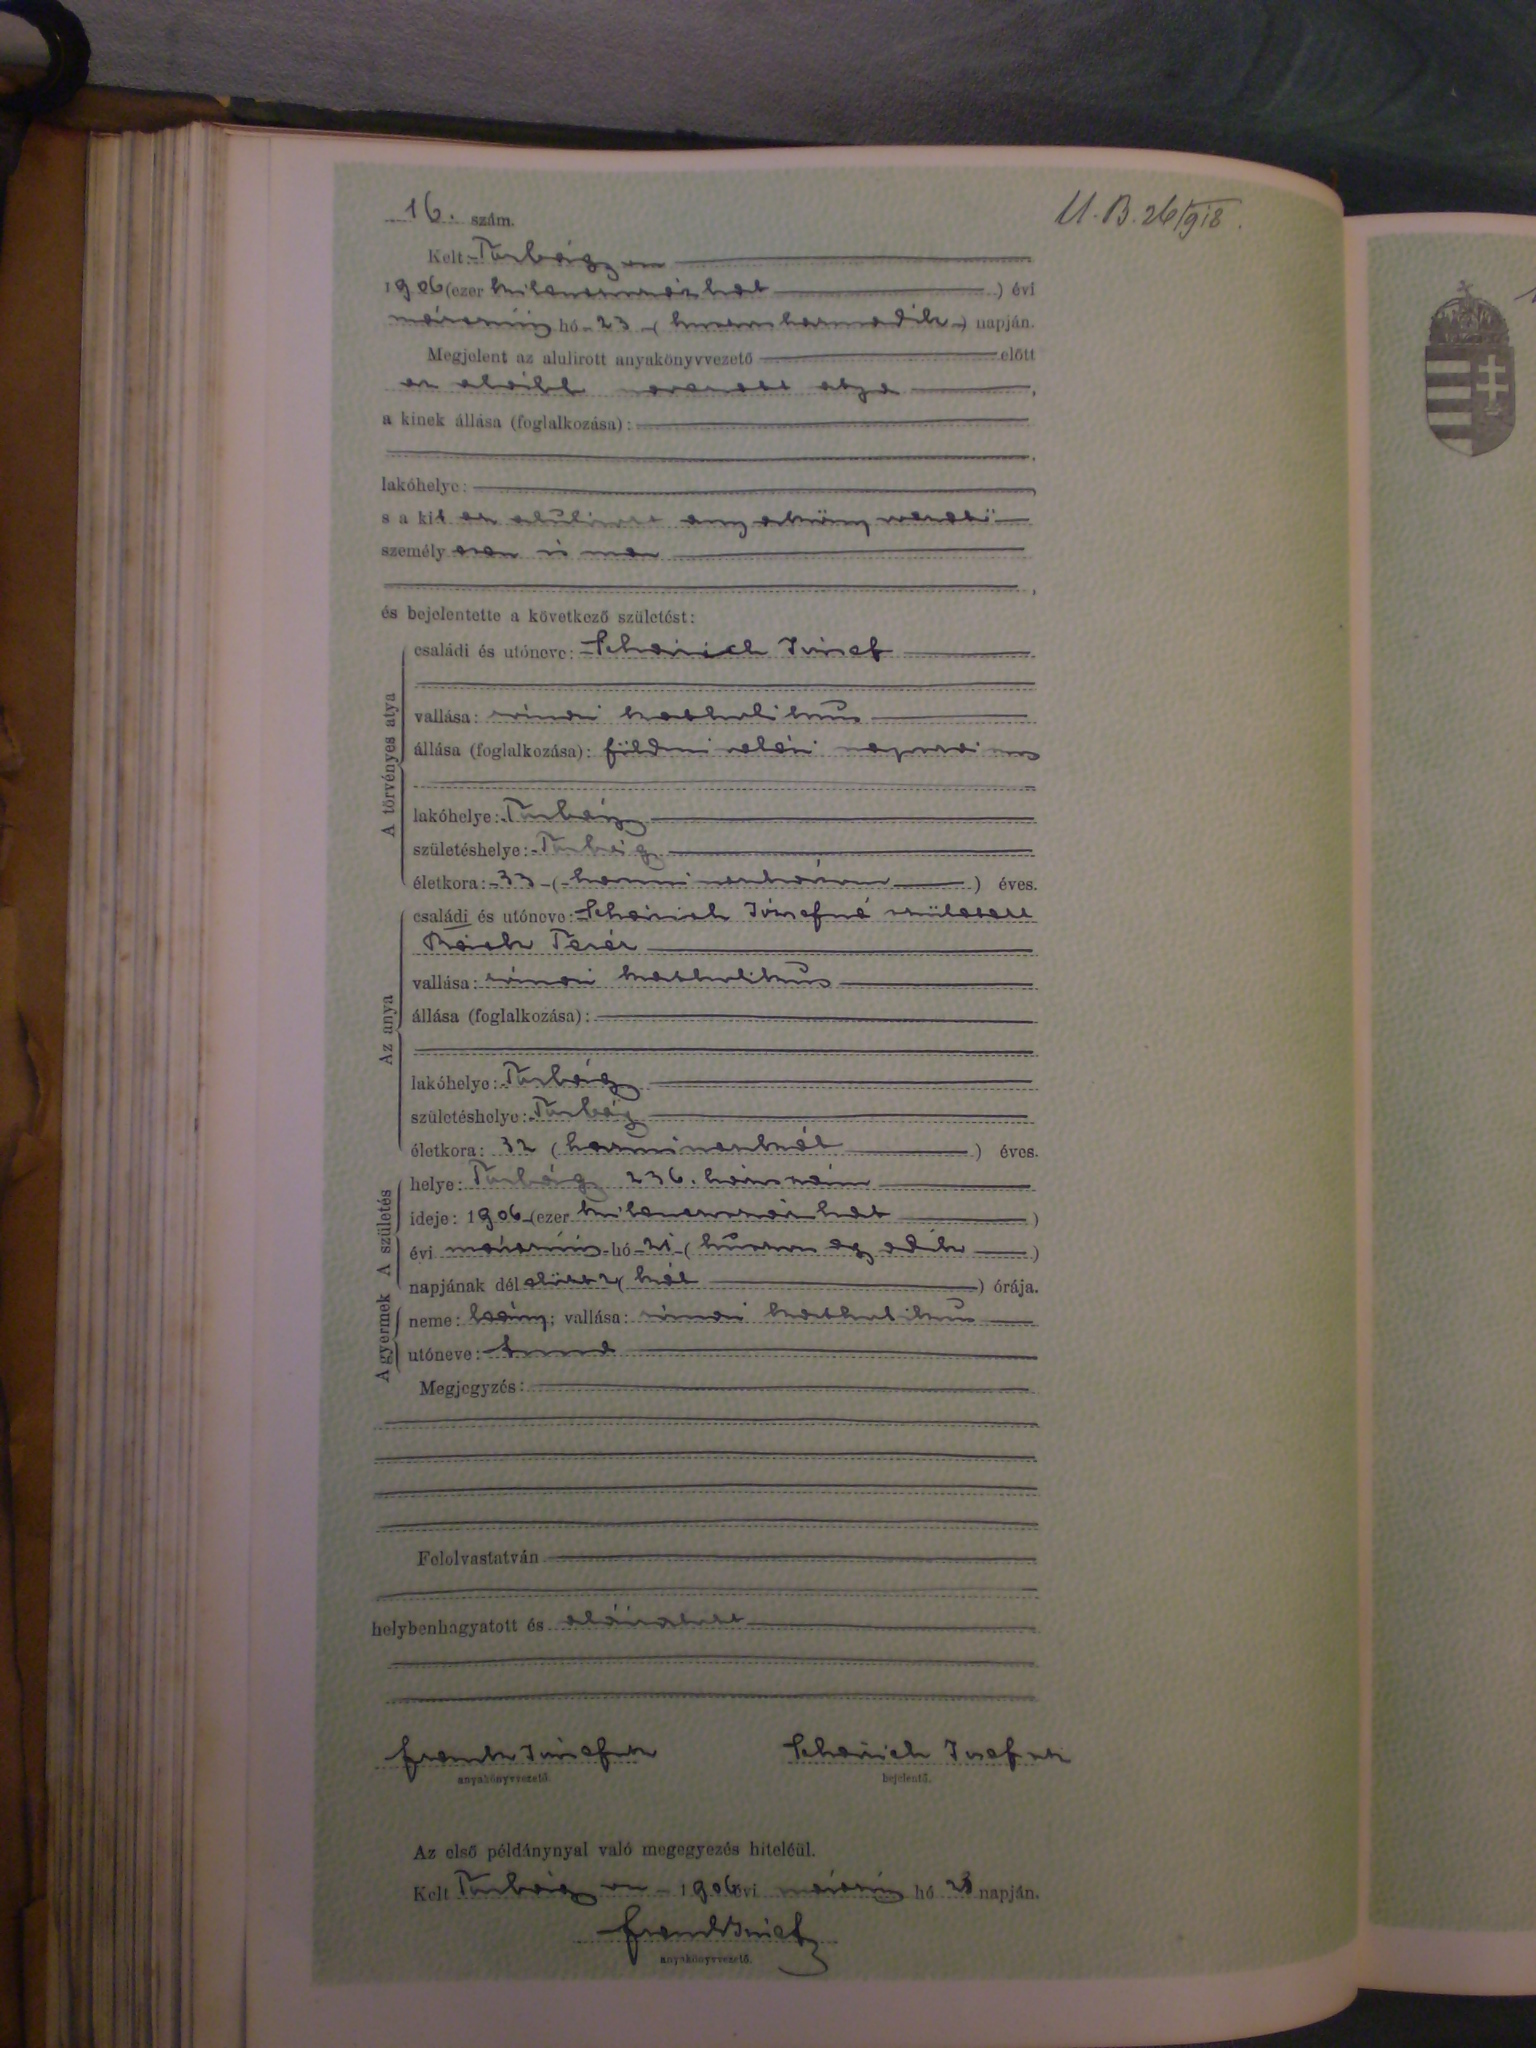 16. szám.
U. B. 26/918.
Kelt: Torbágyon
1906 (ezer kilencszázhat) évi
márczius hó 23 (huszonharmadik) napján.
Megjelent az alulirott anyakönyvvezető előtt
az alább nevezett atya,
a kinek állása (foglalkozása):
lakóhelye:
s a kit az alulirott anyakönyvvezető
személyesen ismer
és bejelentette a következő születést:
A törvényes atya
családi és utóneve: József
vallása: római katholikus
állása (foglalkozása): földmivelési napszámos
lakóhelye: Torbágy
születéshelye: Torbágy
életkora: 33 (harminczhárom) éves.
Az anya
családi és utóneve: Józsefné született
Teréz
vallása: római katholikus
állása (foglalkozása):
lakóhelye: Torbágy
születéshelye: Torbágy
életkora: 32 (harminczkét) éves.
A születés
helye: Torbágy 236. házszám
ideje: 1906 (ezer kilencszázhat)
évi márczius hó 21 (huszonegyedik)
napjának délelőtt 2 (két) órája.
A gyermek
neme: leány; vallása: római katholikus
utóneve: Anna
Megjegyzés:
Felolvastatván
helybenhagyatott és aláíratott
József
anyakönyvvezető. bejelentő.
Az első példánynyal való megegyezés hiteléül.
Kelt Torbágyon 1906 évi márczius hó 23 napján.
József
anyakönyvvezető.